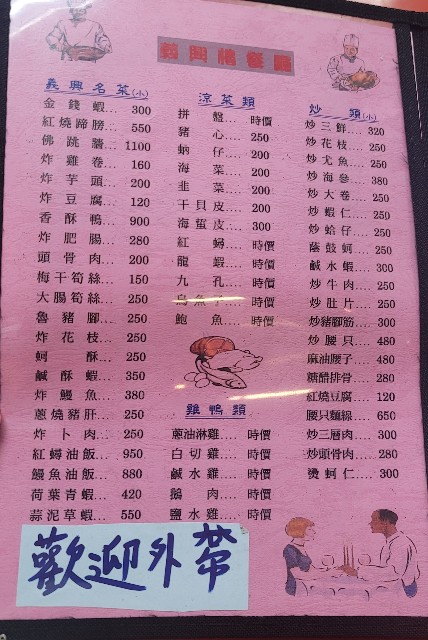 義興樓餐廳
義興名菜(小)
金錢蝦... 300
紅燒蹄膀... 550
佛跳牆... 1100
炸雞卷... 160
炸芋頭... 200
炸豆腐... 120
香酥鴨... 900
炸肥腸... 280
頭骨肉... 200
梅干筍絲... 150
大腸筍絲... 250
魯豬腳... 250
炸花枝... 250
蚵酥... 250
鹹酥蝦... 350
炸鰻魚... 380
蔥燒豬肝... 250
炸卜肉... 250
紅蟳油飯... 950
鰻魚油飯... 880
荷葉青蝦... 420
蒜泥草蝦... 550
涼菜類
拼盤.... 時價
豬心.... 250
蚋仔.... 200
海菜.... 200
韭菜.... 200
干貝皮.... 200
海蜇皮.... 300
紅蟳.... 時價
龍蝦.... 時價
九孔.... 時價
烏魚子.... 時價
鮑魚.... 時價
雞鴨類
蔥油淋雞.... 時價
白切雞.... 時價
鹹水雞.... 時價
鵝肉.... 時價
鹽水雞.... 時價
炒類(小)
炒三鮮.... 320
炒花枝.... 250
炒尤魚.... 250
炒海參.... 380
炒大卷.... 250
炒蝦仁.... 250
炒蛤仔.... 250
蔭豉蚵.... 250
鹹水蝦.... 300
炒牛肉.... 250
炒肚片.... 250
炒豬腳筋.... 300
炒腰只.... 480
麻油腰子.... 480
糖醋排骨.... 280
紅燒豆腐.... 120
腰只麵線.... 650
炒三層肉.... 300
炒頭骨肉.... 280
燙蚵仁.... 300
歡迎外帶